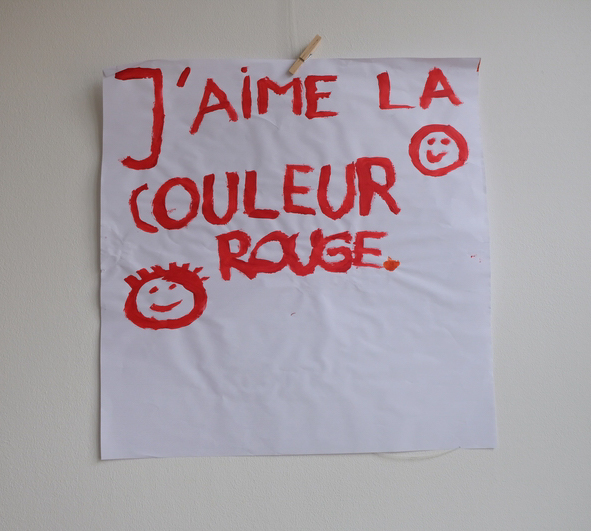 J'AiME LA
COULEUR
ROUGE.